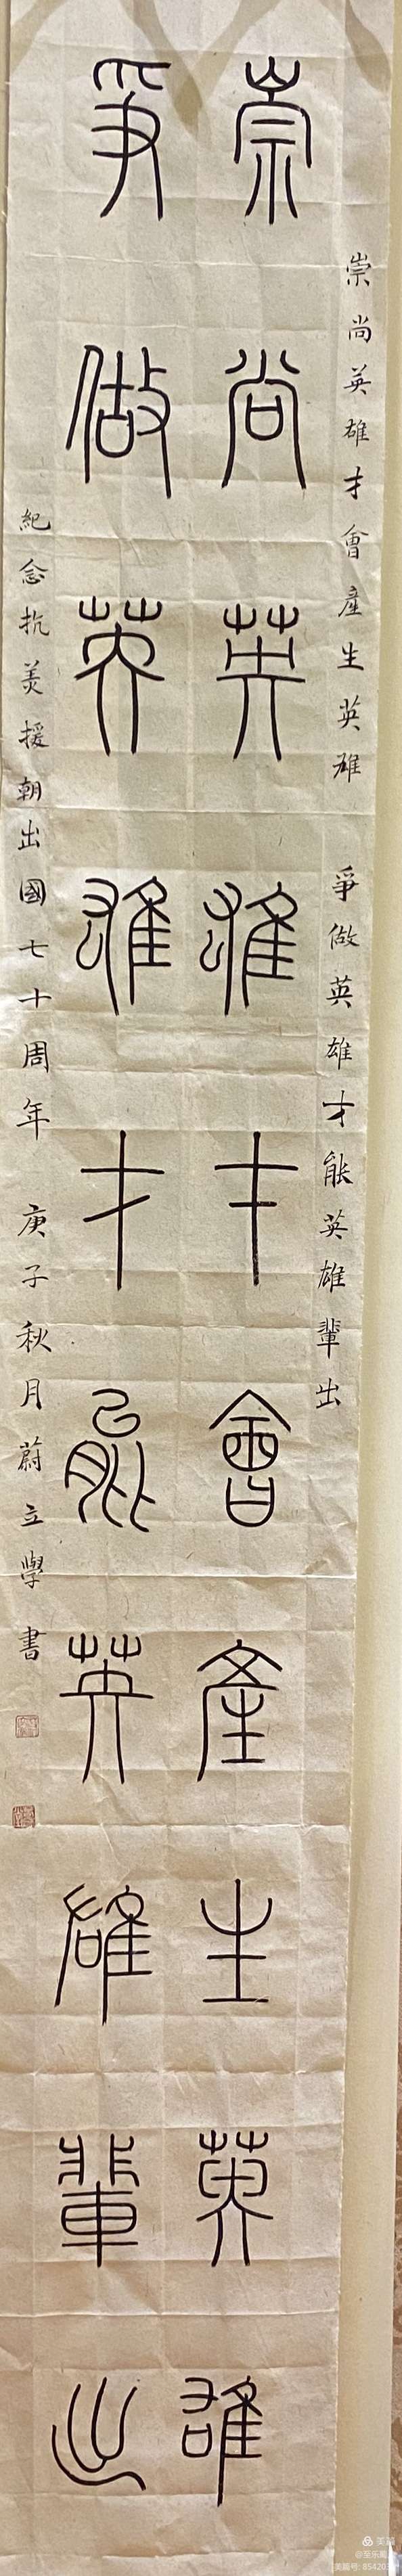 崇尚英雄才會產生英雄 爭做英雄才能英雄輩出
崇尚英雄才會產生英雄
爭做英雄才能英雄輩出
紀念抗美援朝出國七十周年 庚子秋月蔚立學書
美篇
@至乐
美篇号: 85420